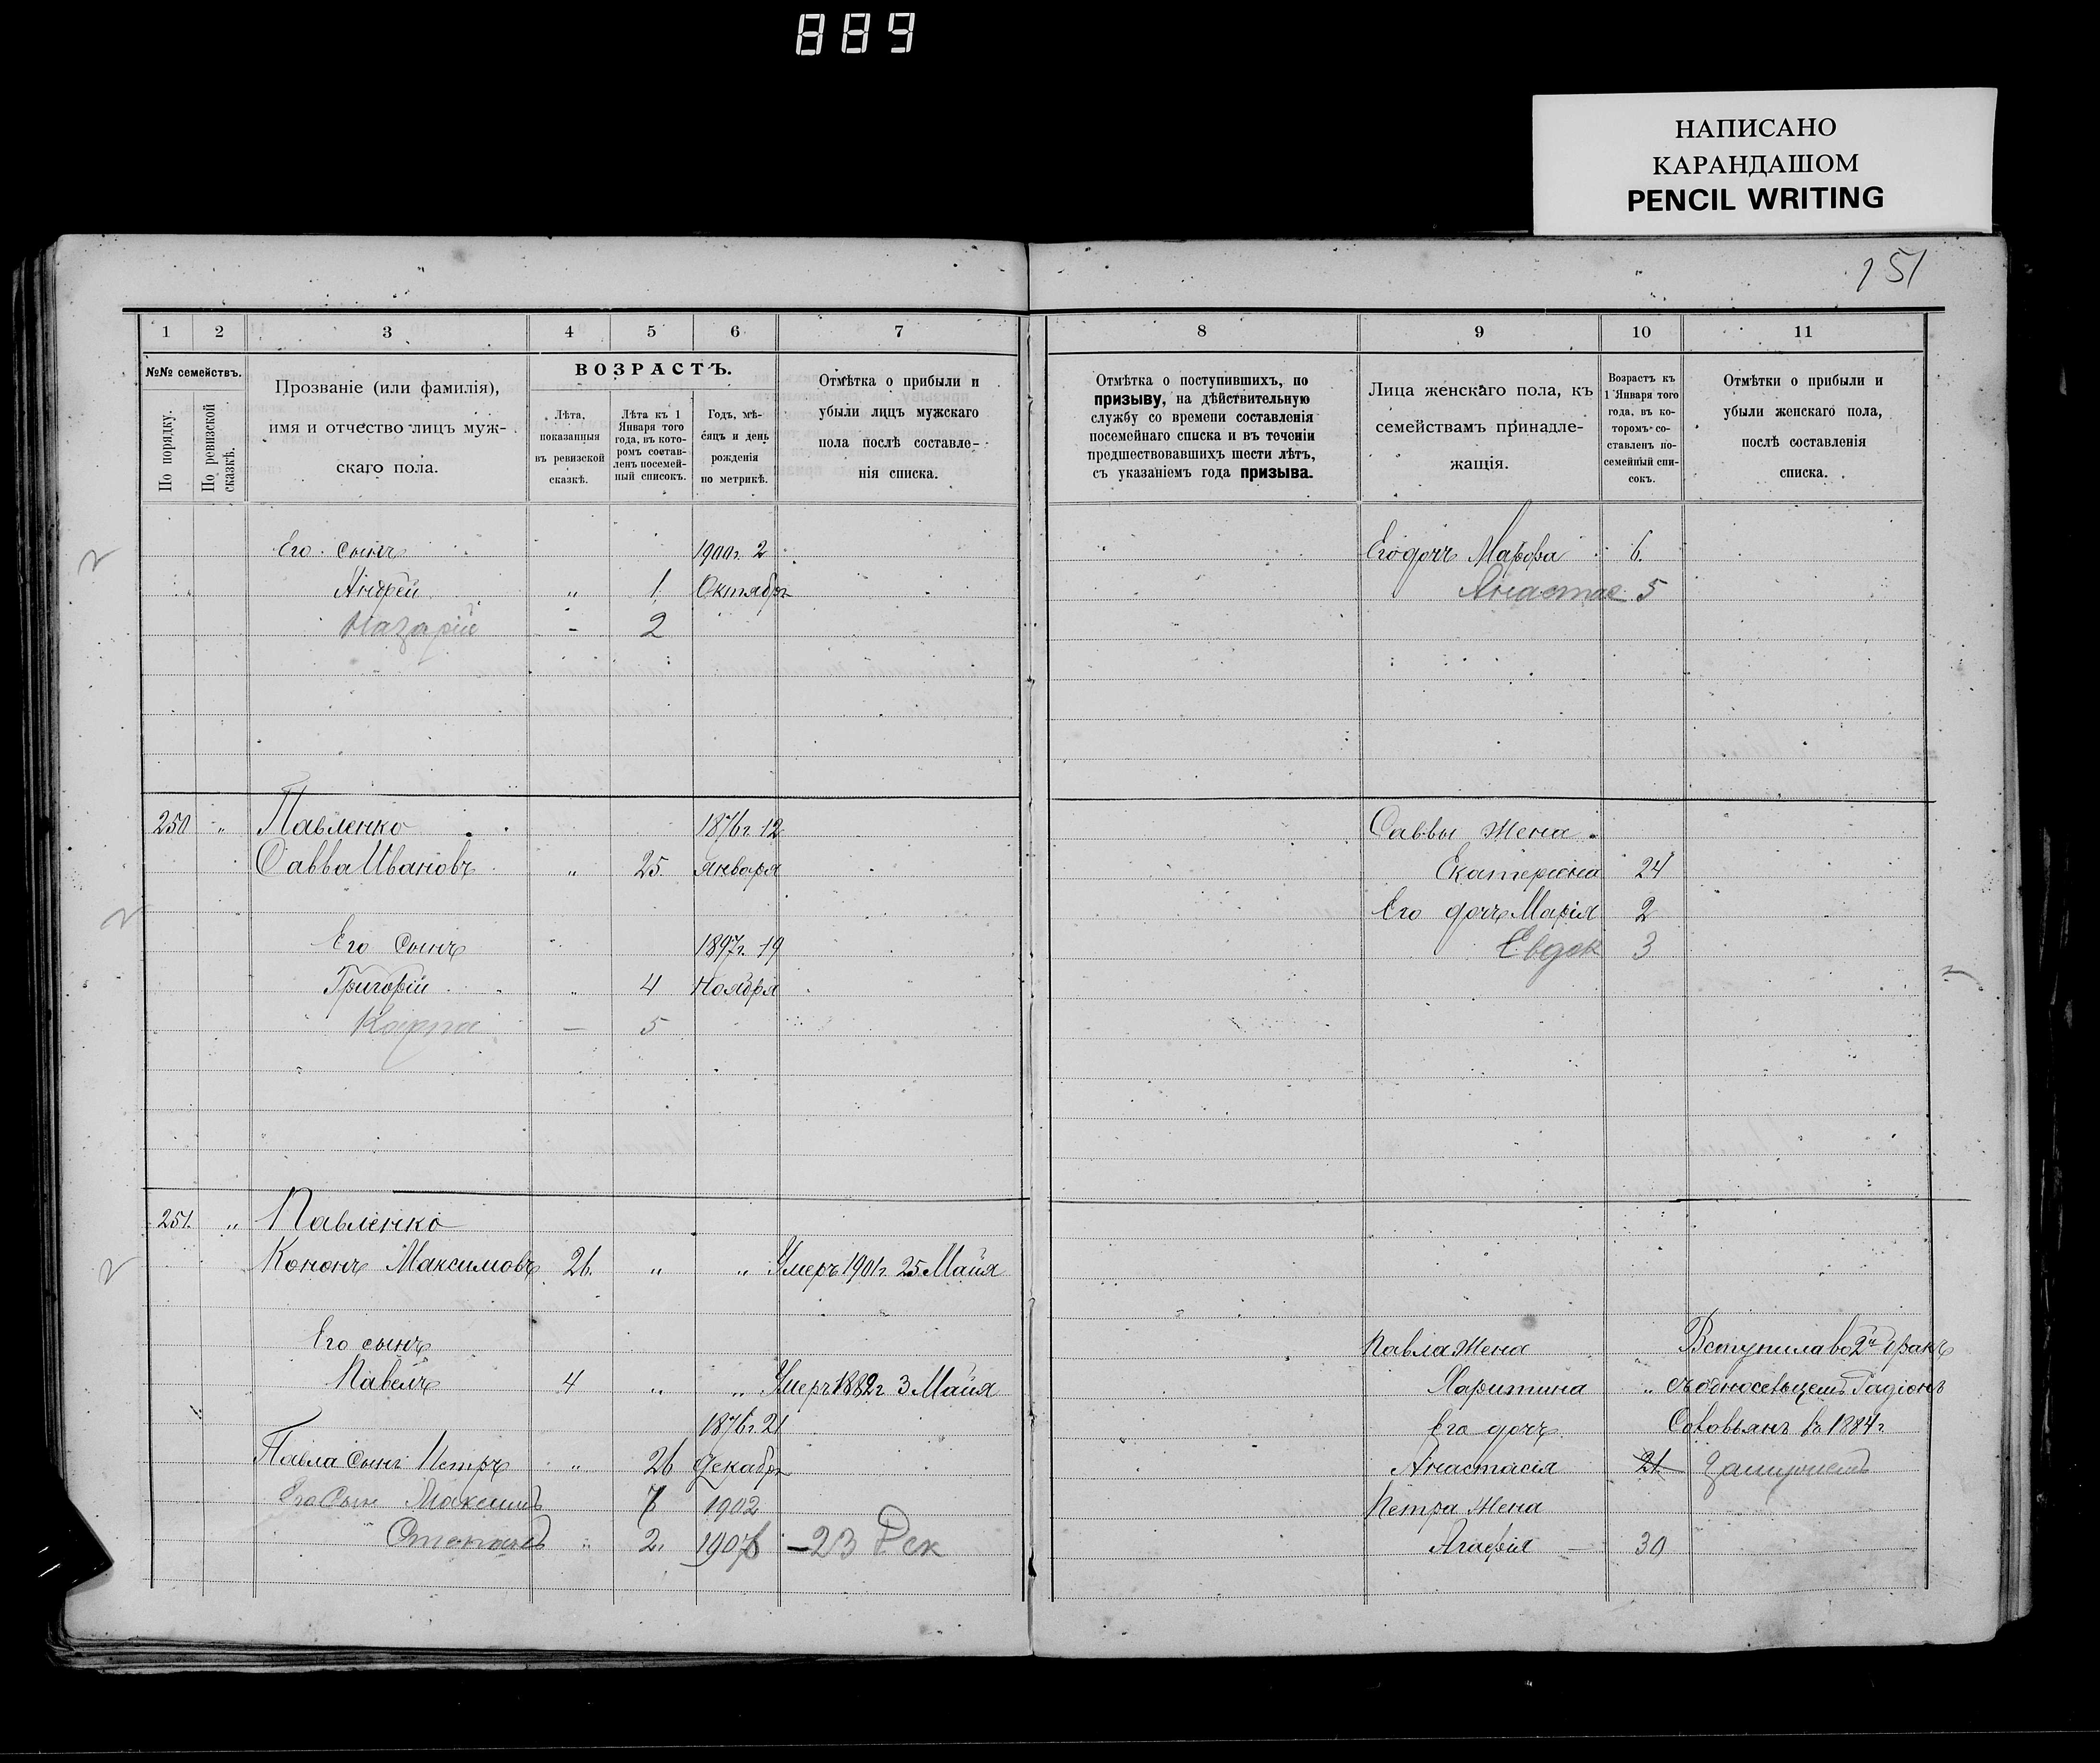 889
НАПИСАНО
КАРАНДАШОМ
PENCIL WRITING
151
1 2 3 4 5 6 7 8 9 10 11
№№ семействъ.
По порядку.
По ревизской сказкѣ.
Прозваніе (или фамилія),
имя и отчество лицъ муж-
скаго пола.
ВОЗРАСТЪ.
Лѣта,
показанныя
въ ревизской
сказкѣ.
Лѣта къ 1
Января того
года, въ кото-
ромъ состав-
ленъ посемей-
ный списокъ.
Годъ, мѣ-
сяцъ и день
рожденія
по метрикѣ.
Отмѣтка о прибыли и
убыли лицъ мужскаго
пола послѣ составле-
нія списка.
Отмѣтка о поступившихъ, по
призыву, на дѣйствительную
службу со времени составленія
посемейнаго списка и въ теченіи
предшествовавшихъ шести лѣтъ,
съ указаніемъ года призыва.
Лица женскаго пола, къ
семействамъ принадле-
жащія.
Возрастъ къ
1 Января того
года, въ ко-
торомъ со-
ставленъ по-
семейный спи-
сокъ.
Отмѣтки о прибыли и
убыли женскаго пола,
послѣ составленія
списка.
Его сынъ 1900г. 2 Его дочь Марѳа 6.
Андрей „ 1. Октября Анастас 5
Назарій - 2
250 „ Павленко 1876г. 12 Саввы жена
Савва Ивановъ „ 25 Января Екатерина 24
Его дочь Марія 2
Его сынъ 1897г. 19 Евдок 3
Григорій „ 4 Ноября
Карпа — 5
251. „ Павленко
Кононъ Максимовъ 26. „ „ Умеръ 1901г. 25 Майя
Его сынъ Павла жена Вступила во 2й бракъ
Павелъ 4 „ „ Умеръ 1882г 3 Майя Харитина „ съ односельцемъ Радіонъ
1876г. 21 Его дочь въ 1884г.
Павла сынъ Петръ „ 26 Декабря Анастасія 21. Замужемъ
Его сын Максимъ 7 1902 Петра жена
Степанъ „ 2. 1906 -23 Дек Агафія — 30